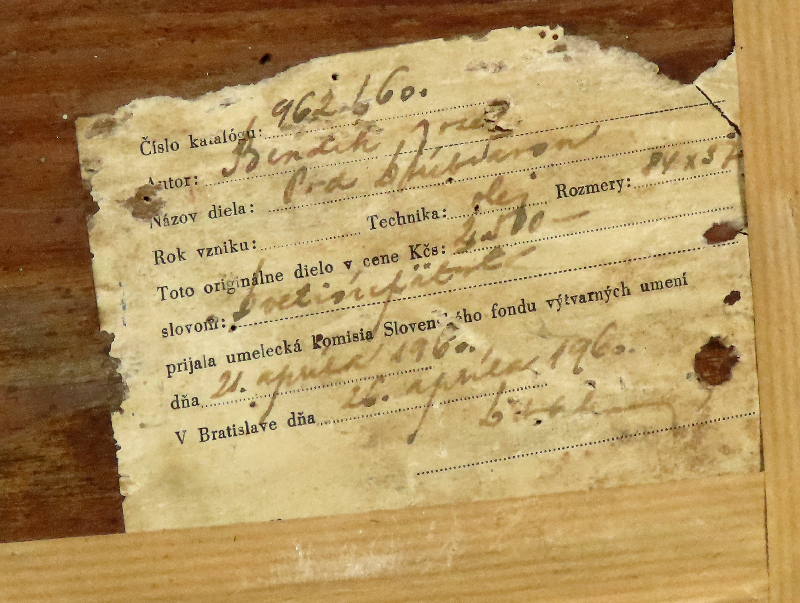 Číslo katalógu: 962/60.
Autor: Bendík
Názov diela: Pod
Rok vzniku: Technika: olej Rozmery: 84x57
Toto originálne dielo v cene Kčs:
slovom:
prijala umelecká komisia Slovenského fondu výtvarných umení
dňa 21. apríla 1960.
V Bratislave dňa 26. apríla 1960.